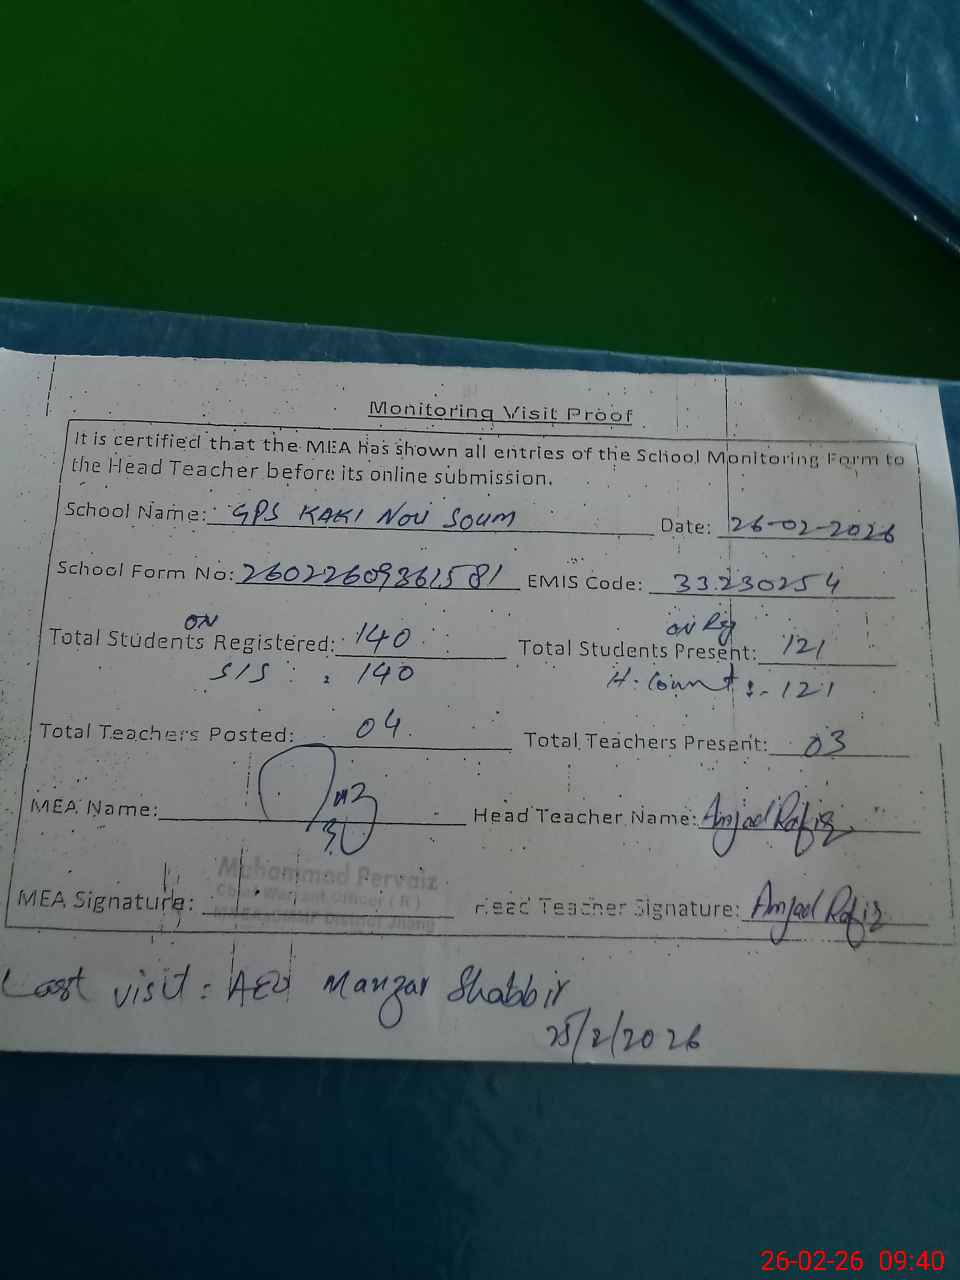 Monitoring Visit Proof
It is certified that the MEA has shown all entries of the School Monitoring Form to
the Head Teacher before its online submission.
School Name: GPS KAKI NOU SOUM Date: 26-02-2026
School Form No: 26022609361581 EMIS Code: 33230254
ON on Reg
Total Students Registered: 140 Total Students Present: 121
SIS : 140 H. Count :- 121
Total Teachers Posted: 04 Total Teachers Present: 03
MEA Name: Head Teacher Name: Amjad Rafiq
Muhammad Pervaiz
Chief Warrant Officer ( R )
District Jhang
MEA Signature: Head Teacher Signature: Amjad Rafiq
Last visit : AEO Manzar Shabbir
25/2/2026
26-02-26 09:40